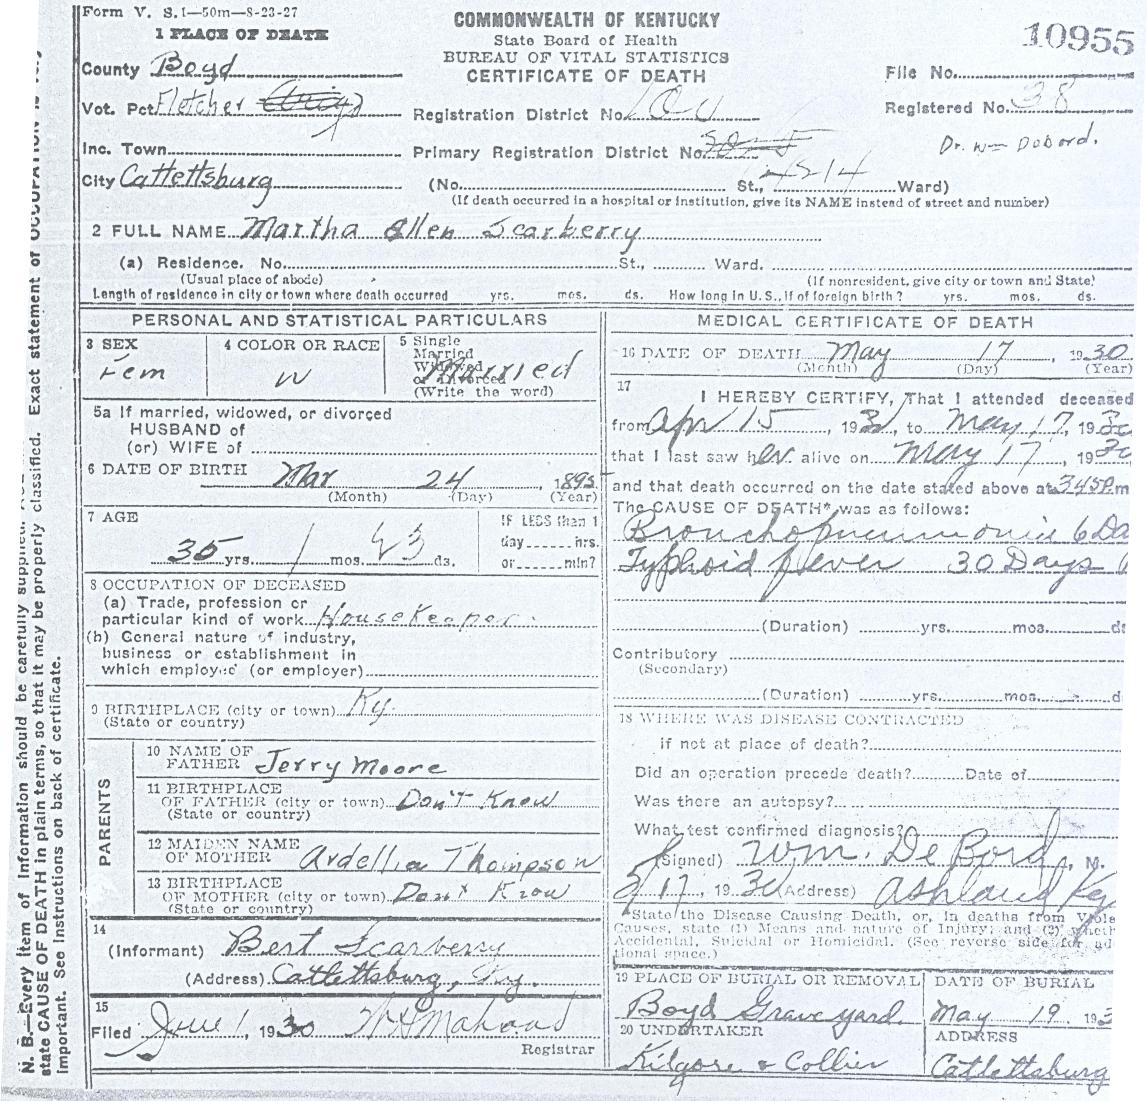 Form V. S. 1—50m—8-23-27
COMMONWEALTH OF KENTUCKY
State Board of Health
BUREAU OF VITAL STATISTICS
CERTIFICATE OF DEATH
10955
1 PLACE OF DEATH
County Boyd
File No.
Vot. Pct. Fletcher
Registration District No.
Registered No. 38
Dr. Wm Debord.
Inc. Town
Primary Registration District No.
City Cattettsburg
(No. St., Ward)
(If death occurred in a hospital or institution, give its NAME instead of street and number)
2 FULL NAME Martha Ellen Scarberry
(a) Residence. No. St., Ward.
(Usual place of abode) (If nonresident, give city or town and State)
Length of residence in city or town where death occurred yrs. mos. ds. How long in U.S., if of foreign birth? yrs. mos. ds.
PERSONAL AND STATISTICAL PARTICULARS
3 SEX
Fem
4 COLOR OR RACE
W
5 Single
Married
Widowed
or Divorced
(Write the word)
Married
5a If married, widowed, or divorced
HUSBAND of
(or) WIFE of
6 DATE OF BIRTH Mar 24, 1895
(Month) (Day) (Year)
7 AGE
35 yrs. 1 mos. 23 ds.
IF LESS than 1
day hrs.
or min?
8 OCCUPATION OF DECEASED
(a) Trade, profession or
particular kind of work Housekeeper
(b) General nature of industry,
business or establishment in
which employed (or employer)
9 BIRTHPLACE (city or town) Ky.
(State or country)
PARENTS
10 NAME OF
FATHER Jerry Moore
11 BIRTHPLACE
OF FATHER (city or town) Don't Know
(State or country)
12 MAIDEN NAME
OF MOTHER Ardellia Thompson
13 BIRTHPLACE
OF MOTHER (city or town) Don't Know
(State or country)
14
(Informant) Bert Scarberry
(Address) Catlettsburg, Ky.
15
Filed June 1, 1930
Registrar
MEDICAL CERTIFICATE OF DEATH
16 DATE OF DEATH May 17, 1930
(Month) (Day) (Year)
17
I HEREBY CERTIFY, That I attended deceased
from Apr 15, 193, to May 17, 1930
that I last saw her alive on May 17, 1930
and that death occurred on the date stated above at 345 P.m
The CAUSE OF DEATH* was as follows:
Bronchopneumonia 6 Da
Typhoid fever 30 Days
(Duration) yrs. mos. ds
Contributory
(Secondary)
(Duration) yrs. mos. d
18 WHERE WAS DISEASE CONTRACTED
if not at place of death?
Did an operation precede death? Date of
Was there an autopsy?
What test confirmed diagnosis?
(Signed) Wm. DeBord, M.
5/17, 1930 (Address) Ashland Ky
*State the Disease Causing Death, or, in deaths from Viole
Causes, state (1) Means and nature of Injury; and (2) wheth
Accidental, Suicidal or Homicidal. (See reverse side for ad
tional space.)
19 PLACE OF BURIAL OR REMOVAL
Boyd Graveyard
DATE OF BURIAL
May 19, 193
20 UNDERTAKER
Kilgore & Collier
ADDRESS
Catlettsburg
N. B.—Every Item of Information should be carefully supplied.
state CAUSE OF DEATH in plain terms, so that it may be properly classified. Exact statement of OCCUPATION is very
important. See Instructions on back of certificate.